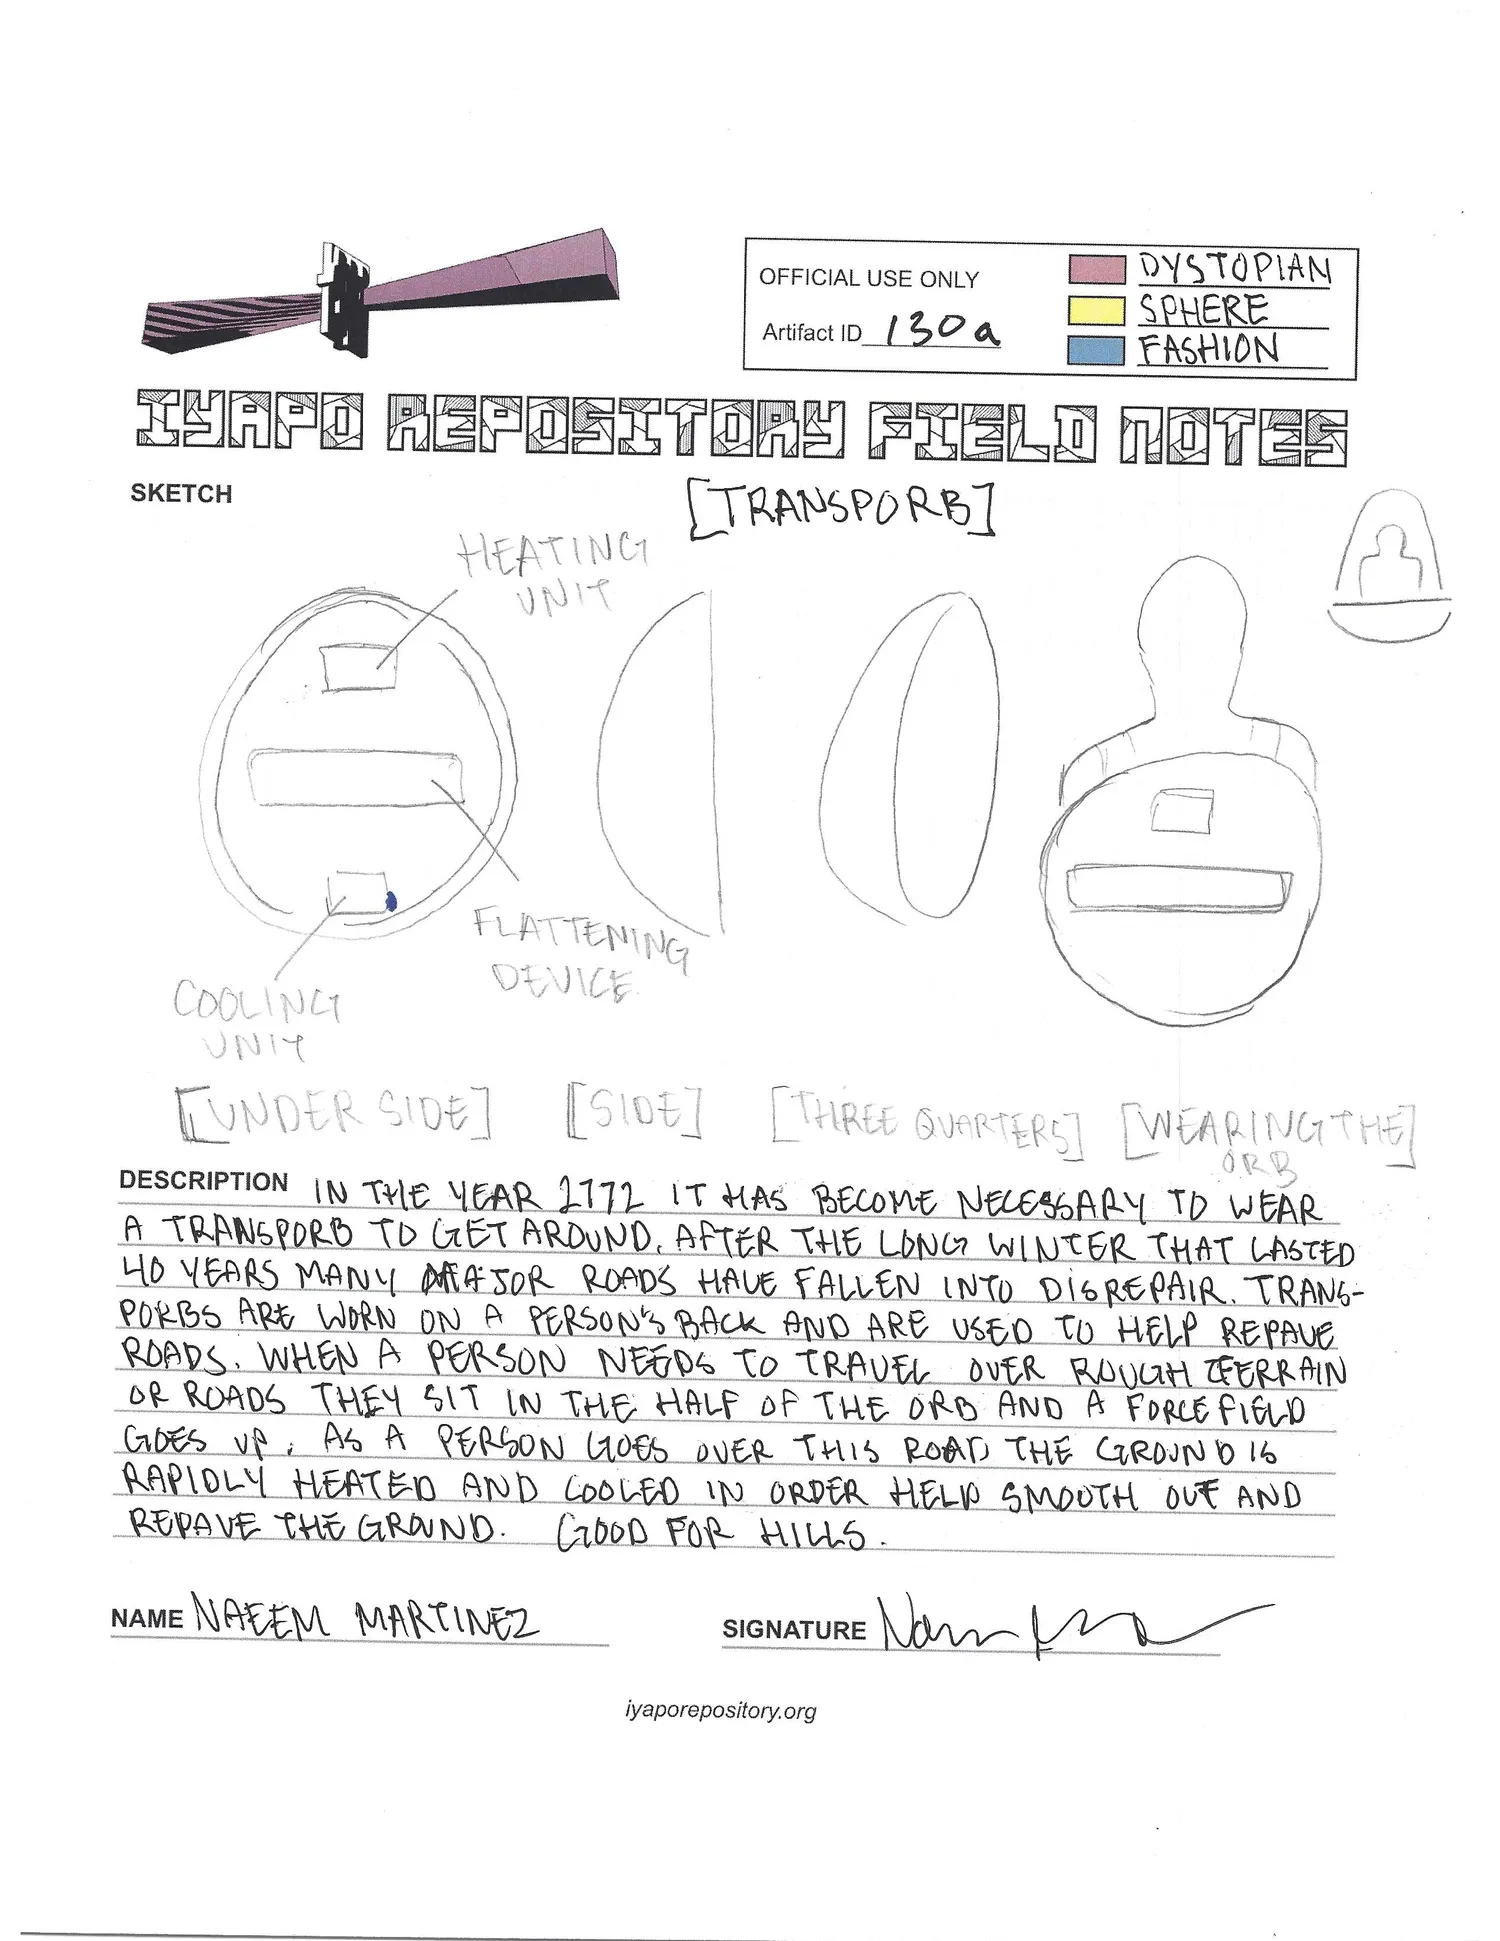 OFFICIAL USE ONLY
Artifact ID 130a
DYSTOPIAN
SPHERE
FASHION
IYAPO REPOSITORY FIELD NOTES
SKETCH
[TRANSPORB]
HEATING
UNIT
FLATTENING
DEVICE
COOLING
UNIT
[UNDER SIDE] [SIDE] [THREE QUARTERS] [WEARING THE]
ORB
DESCRIPTION IN THE YEAR 2772 IT HAS BECOME NECESSARY TO WEAR
A TRANSPORB TO GET AROUND. AFTER THE LONG WINTER THAT LASTED
40 YEARS MANY MAJOR ROADS HAVE FALLEN INTO DISREPAIR. TRANS-
PORBS ARE WORN ON A PERSON'S BACK AND ARE USED TO HELP REPAVE
ROADS. WHEN A PERSON NEEDS TO TRAVEL OVER ROUGH TERRAIN
OR ROADS THEY SIT IN THE HALF OF THE ORB AND A FORCEFIELD
GOES UP. AS A PERSON GOES OVER THIS ROAD THE GROUND IS
RAPIDLY HEATED AND COOLED IN ORDER HELP SMOOTH OUT AND
REPAVE THE GROUND. GOOD FOR HILLS.
NAME NAEEM MARTINEZ
SIGNATURE
iyaporepository.org